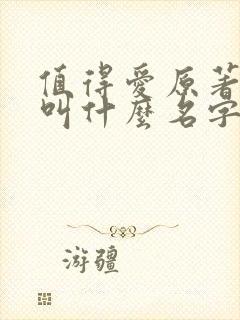 值得愛原著
叫什麼名字
游疆